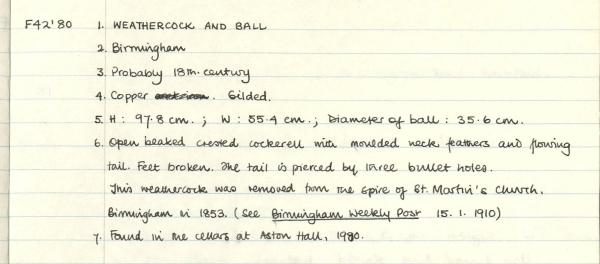 F42'80 1. WEATHERCOCK AND BALL
2. Birmingham
3. Probably 18th. century
4. Copper and iron. Gilded.
5. H: 97.8 cm.; W: 55.4 cm.; Diameter of ball: 35.6 cm.
6. Open beaked crested cockerell with moulded neck feathers and flowing
tail. Feet broken. The tail is pierced by three bullet holes.
This weathercock was removed from the spire of St. Martin's Church,
Birmingham in 1853. (See Birmingham Weekly Post 15.1.1910)
7. Found in the cellars at Aston Hall, 1980.